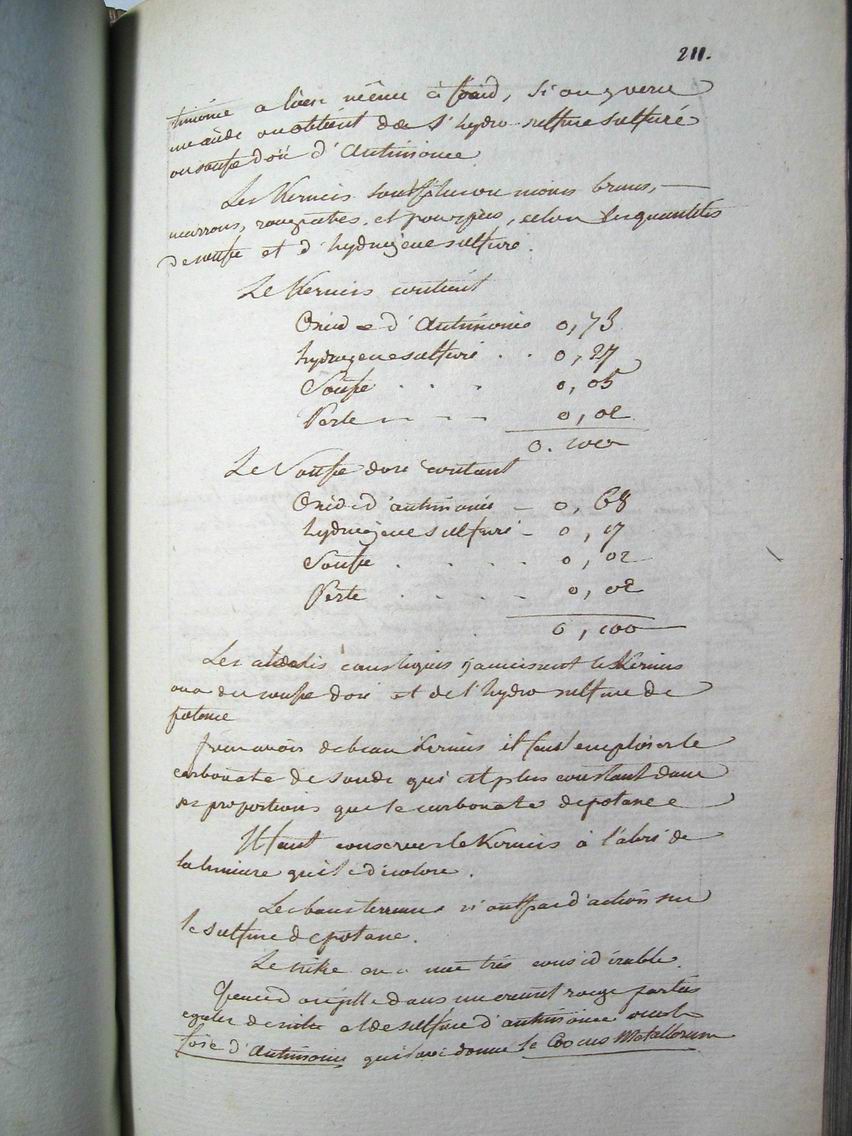 211.
timoine a lieu même à froid, si on y verse
un acide on obtient de l'hydro-sulfure sulfuré
ou soufre doré d'Antimoine
Les Kermes sont plus ou moins bruns,
marrons, rougeatres, et pourpres, selon les quantités
de soufre et d'hydrogene sulfuré.
Le Kermes contient
Oxide d'Antimoine 0,73
hydrogene sulfuré . . 0,27
Soufre . . . 0,05
Perte - - - 0,02
0.100
Le Soufre doré contient
Oxide d'antimoine - 0,68
hydrogene sulfuré - 0,17
Soufre . . . . 0,02
Perte . . . . 0,02
0,100
Les alcalis caustiques jaunissent le Kermes
on a du soufre doré et de l'hydro sulfure de
potasse
pour avoir de beau Kermes il faut emploier le
carbonate de soude qui est plus constant dans
ses proportions que le carbonate de potasse
Il faut conserver le Kermes à l'abri de
la lumiere qui le décolore.
Les bases terreuses n'ont pas d'action sur
le sulfure de potasse.
Le nitre en a une très considérable.
Quand on jette dans un creuset rouge parties
egales de nitre et de sulfure d'antimoine on a le
foie d'Antimoine qui lavé donne le Crocus Metallorum